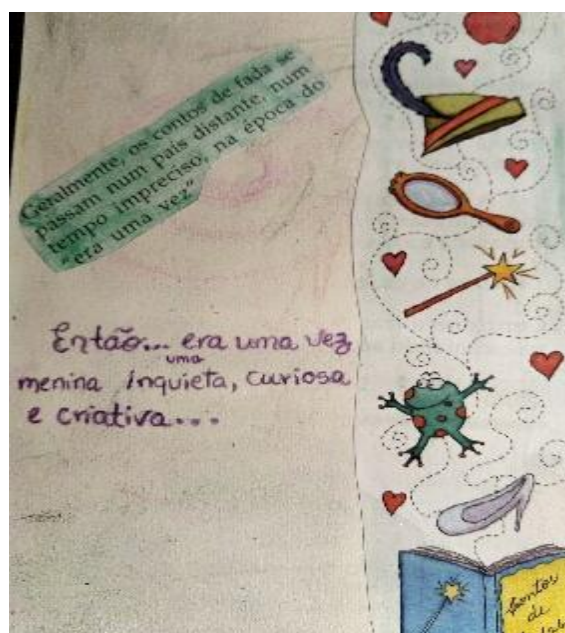 Geralmente, os contos de fada se
passam num país distante, num
tempo impreciso, na época do
"era uma vez"
Então... era uma vez
uma
menina inquieta, curiosa
e criativa...
Contos
de